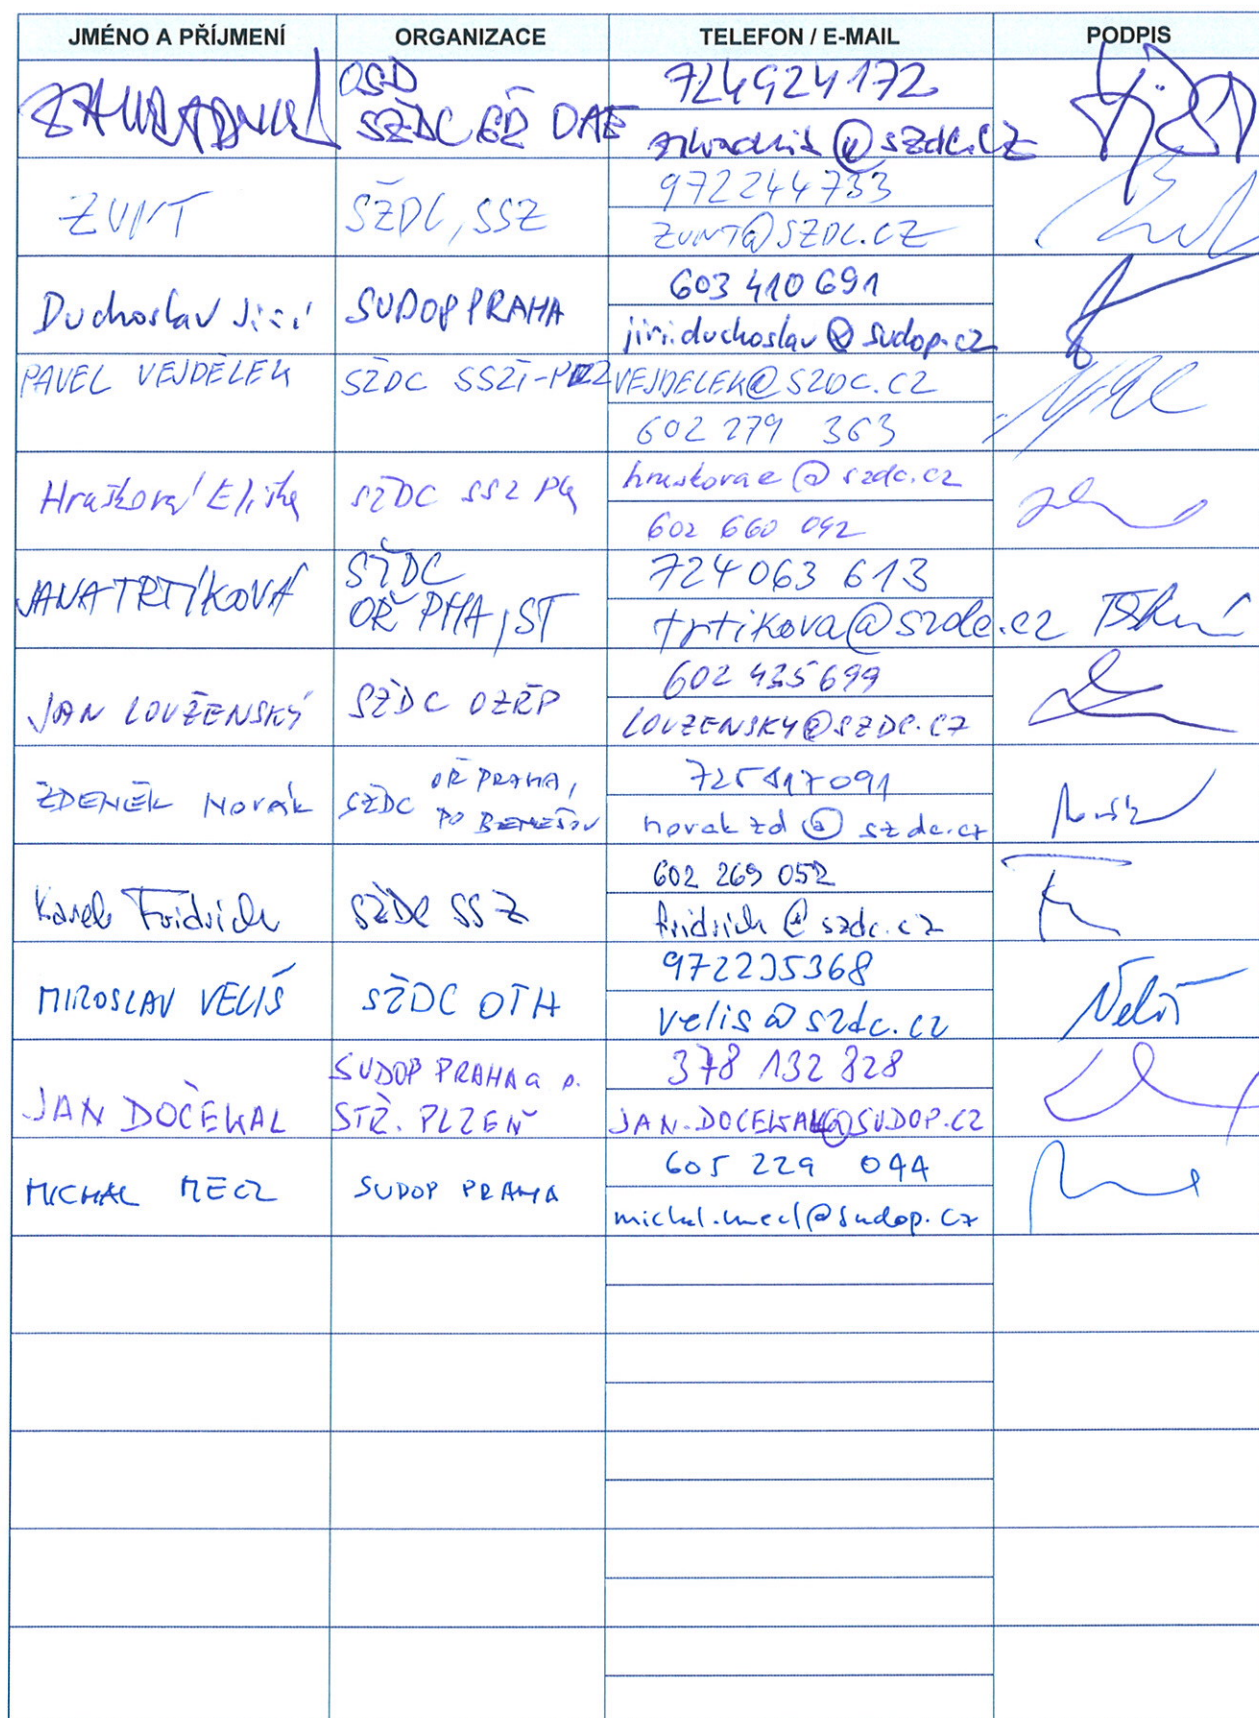 JMÉNO A PŘÍJMENÍ ORGANIZACE TELEFON / E-MAIL PODPIS
OSD 724924172
SŽDC GŘ OAE @szdc.cz
ZUNT SŽDC, SSZ 972244733
ZUNT@SZDC.CZ
Duchoslav Jiří SUDOP PRAHA 603 410 691
jiri.duchoslav@sudop.cz
PAVEL VEJDĚLEK SŽDC VEJDELEK@SZDC.CZ
602 279 363
Hrušková Eliška SŽDC SSZ hruskovae@szdc.cz
602 660 092
JANA TRTÍKOVÁ SŽDC 724 063 613
OŘ PHA, ST trtikova@szdc.cz
JAN LOUŽENSKÝ SŽDC OZŘP 602 435 699
LOUZENSKY@SZDC.CZ
ZDENĚK NOVÁK SŽDC OŘ PRAHA, 725817091
PO BENEŠOV novakzd@szdc.cz
Karel Fridrich SŽDC SSZ 602 269 052
fridrich@szdc.cz
MIROSLAV VELIŠ SŽDC OTH 972235368
velis@szdc.cz Veliš
JAN DOČEKAL SUDOP PRAHA a.s. 378 132 828
STŘ. PLZEŇ JAN.DOCEKAL@SUDOP.CZ
MICHAL MECL SUDOP PRAHA 605 229 044
michal.mecl@sudop.cz